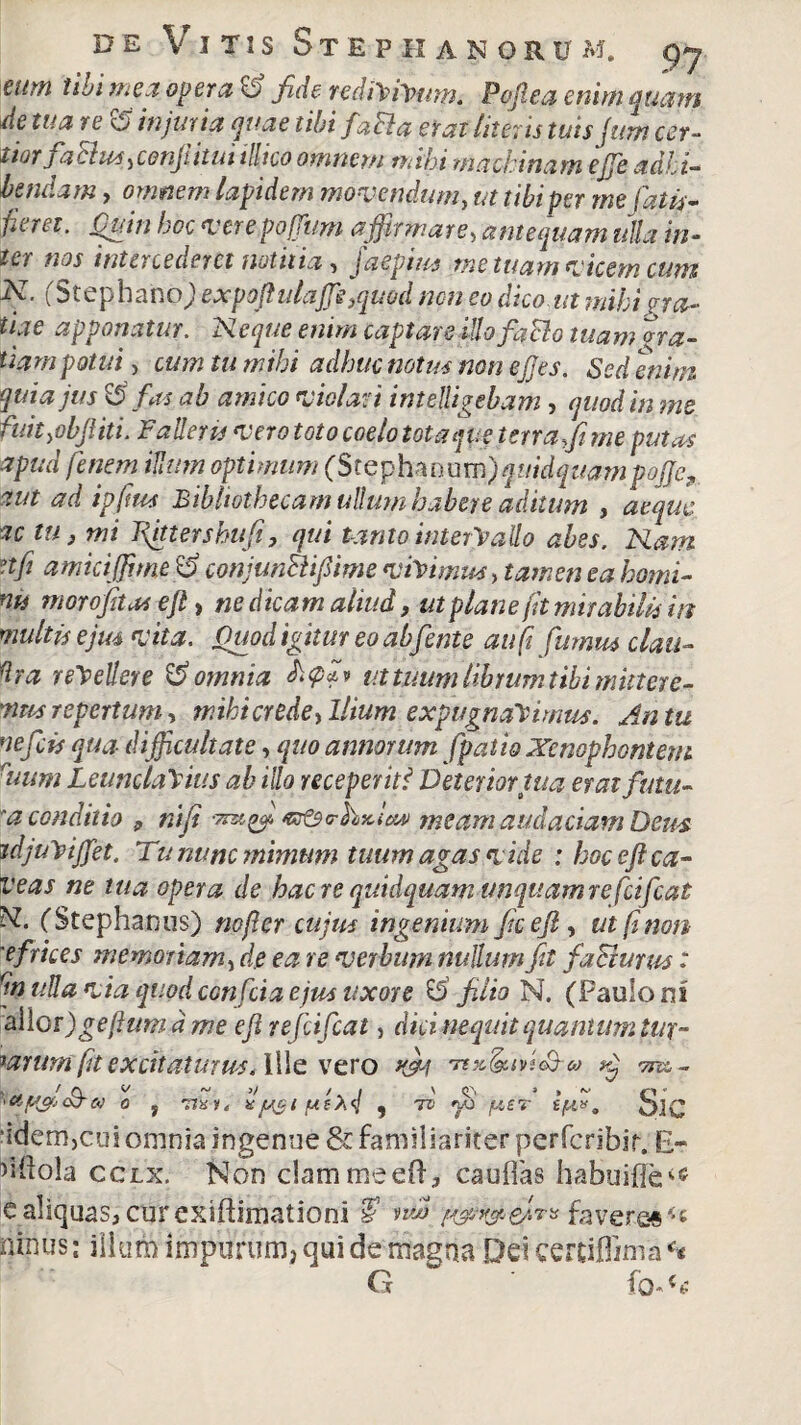 DE VITIS STEPHANORUM. 97
eum tibi mea opera & fide redivivum. Postea enim quam
de tua re & injuria quae tibi facta erat literis tuis sum cer-
tior factus, constitui illico omnem mihi machinam esse adhi-
bendam, omnem lapidem movendum, ut tibi per me satis-
fieret. Quin hoc vere possum affirmare, antequam ulla in-
ter nos intercederet notitia, saepius me tuam vicem cum
N. (Stephano) expostulasse, quod non eo dico ut mihi gra-
tiae apponatur. Neque enim captare illo facto tuam gra-
tiam potui, cum tu mihi adhuc notus non esses. Sed enim
quia jus & fas ab amico violari intelligebam, quod in me
fuit, obstiti. Falleris vero toto coelo totaque terra, si me putas
apud senem illum optimum (Stephanum) quidquam posse,
aut ad ipsius Bibliothecam ullum habere aditum, aeque
ac tu, mi Rittershusi, qui tanto intervallo abes. Nam
etsi amicissime & conjunctissime vivimus, tamen ea homi-
nis morositas est, ne dicam aliud, ut plane sit mirabilis in
multis ejus vita. Quod igitur eo absente ausi sumus clau-
stra revellere & omnia ut tuum librum tibi mittere-
mus repertum, mihi crede, Ilium expugnavimus. An tu
nescis qua difficultate, quo annorum spatio Xenophontem
suum Leunclavius ab illo receperit? Deterior tua erat futu-
ra conditio, nisi meam audaciam Deus
adjuvisset. Tu nunc mimum tuum agas vide: hoc est ca-
veas ne tua opera de hac re quidquam unquam rescifcat
N. (Stephanus) noster cujus ingenium sic est, ut si non
refrices memoriam, de ea re verbum nullum sit facturus:
sin ulla via quod conscia ejus uxore & filio N. (Paulo ni
fallor) gestum a me est resciscat, dici nequit quantum tur-
barum sit excitaturus. Ille vero
Sic
idem, cui omnia ingenue & familiariter perscribit. E-
pistola CCLX. Non clam me est, caussas habuisse “
e aliquas, cur existimationi faveres “
minus: illum impurum, qui de magna Dei certissima “
G so- “